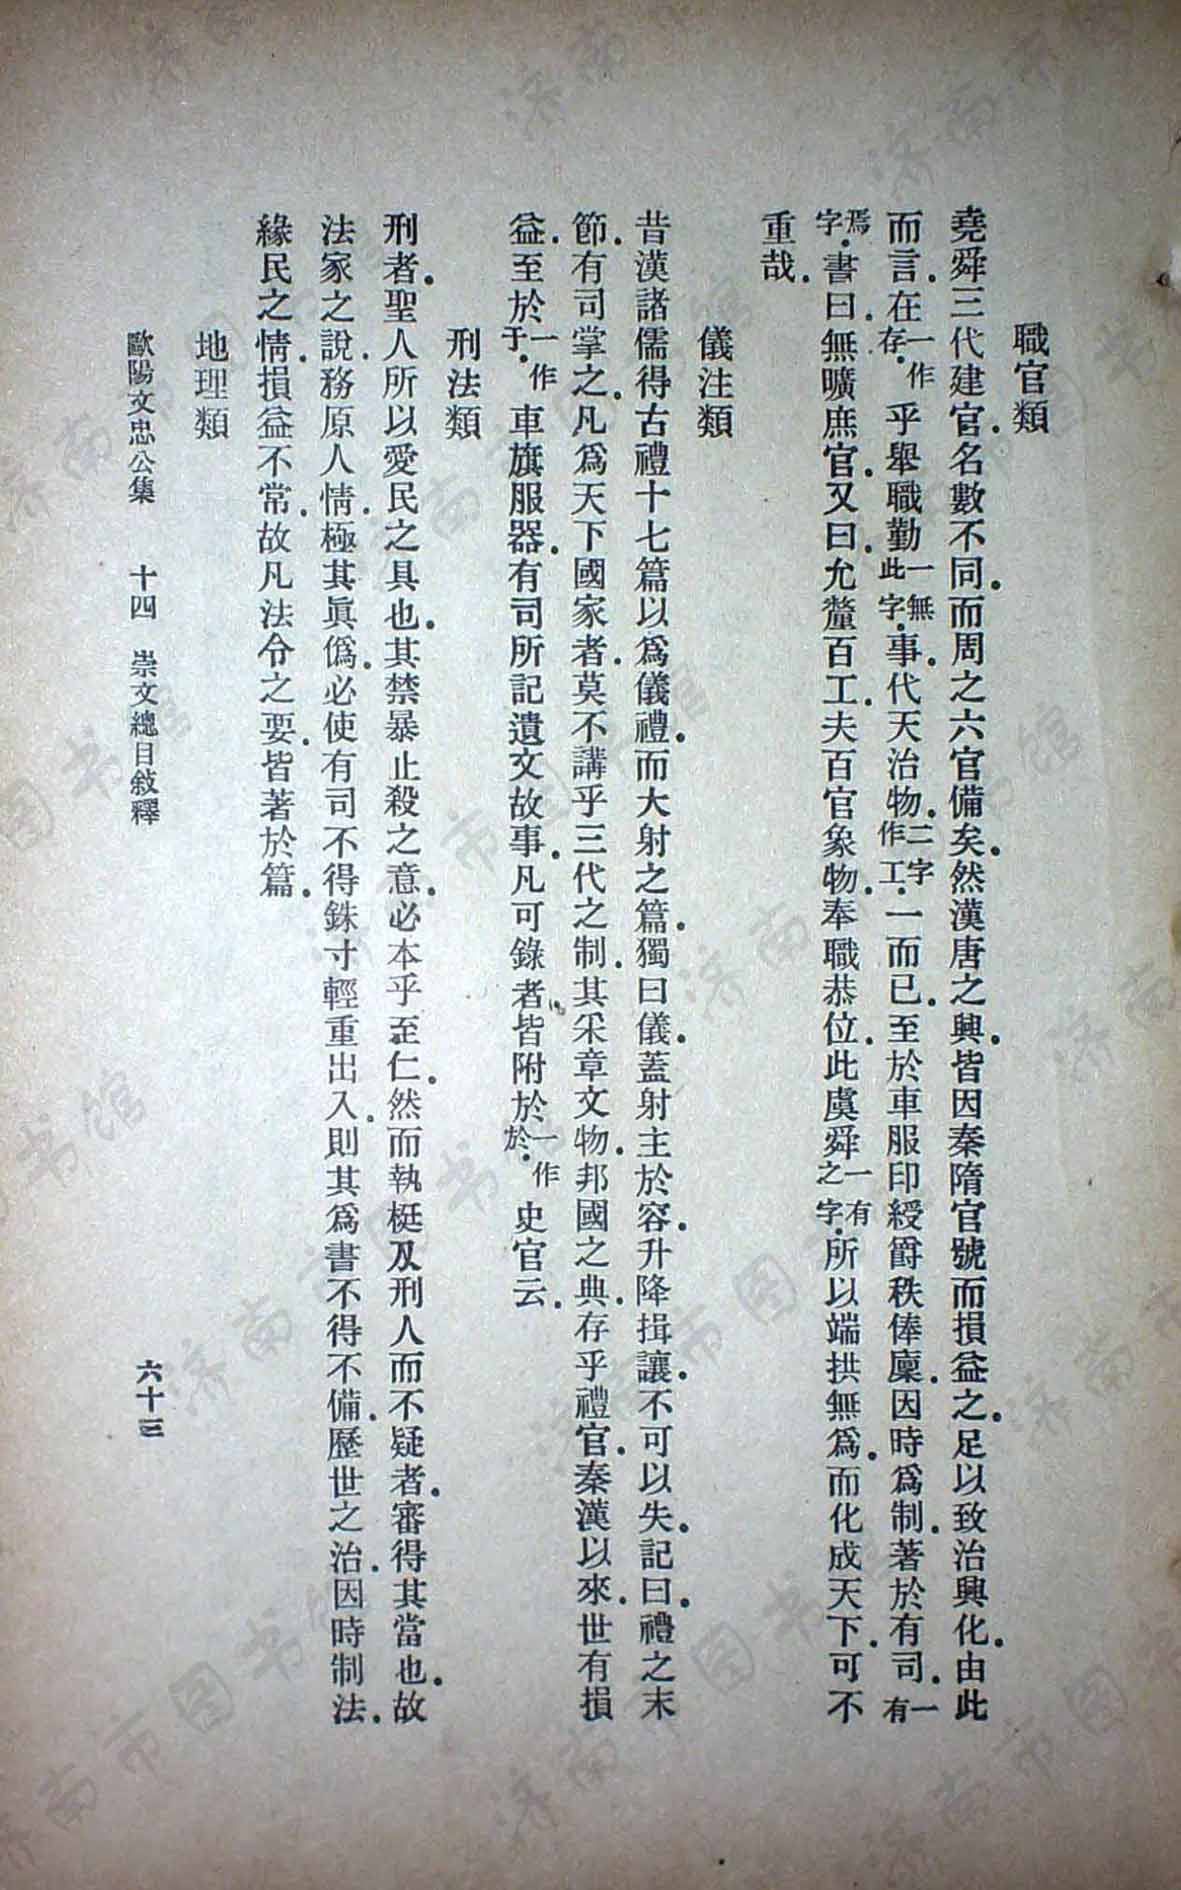 職官類
堯舜三代建官名數不同．而周之六官備矣．然漢唐之興．皆因秦隋官號而損益之．足以致治興化．由此
而言．在一作存．乎舉職勤一無此字．事．代天治物．二字作工．一而已．至於車服印綬爵秩俸廩．因時爲制．著於有司．一有
焉字．書曰．無曠庶官．又曰．允釐百工．夫百官象物．奉職恭位．此虞舜一有之字．所以端拱無爲．而化成天下．可不
重哉．
儀注類
昔漢諸儒得古禮十七篇以爲儀禮．而大射之篇．獨曰儀．蓋射主於容．升降揖讓．不可以失．記曰．禮之末
節．有司掌之．凡爲天下國家者．莫不講乎三代之制．其采章文物．邦國之典．存乎禮官．秦漢以來．世有損
益．至於一作于．車旗服器．有司所記遺文故事．凡可錄者．皆附於一作於．史官云．
刑法類
刑者．聖人所以愛民之具也．其禁暴止殺之意．必本乎至仁．然而執梃及刑人而不疑者．審得其當也．故
法家之說．務原人情．極其眞僞．必使有司不得銖寸輕重出入．則其爲書不得不備．歷世之治．因時制法．
緣民之情．損益不常．故凡法令之要．皆著於篇．
地理類
歐陽文忠公集　十四　崇文總目敍釋　六十三
济南市图书馆